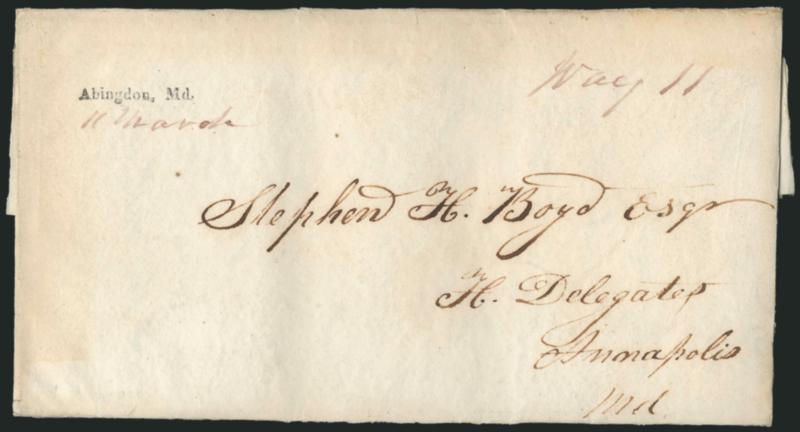 Abingdon, Md.
11 March
Way 11
Stephen H. Boyd Esqr
H. Delegates
Annapolis
Md